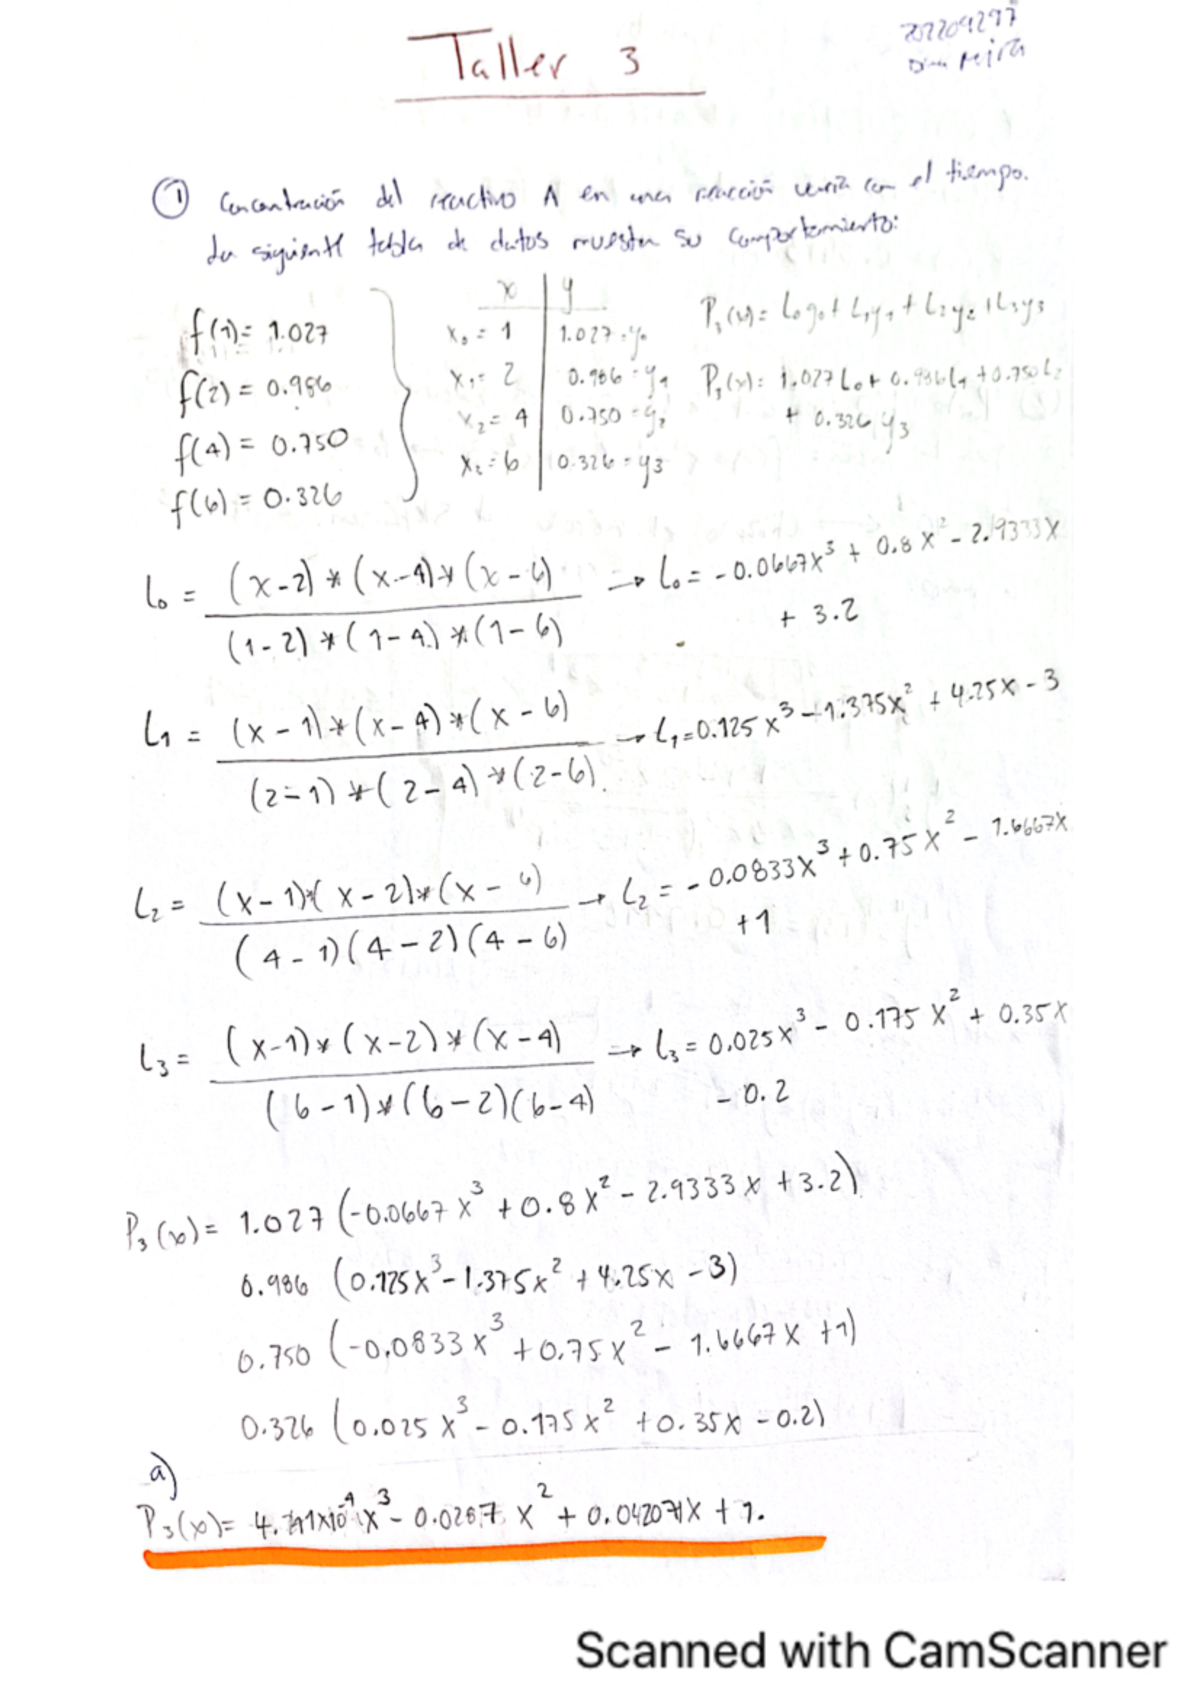 Taller 3
202209297
① Concentración del reactivo A en una reacción varía con el tiempo.
La siguiente tabla de datos muestra su comportamiento:
f(1)= 1.027
f(2) = 0.986
f(4) = 0.750
f(6) = 0.326
x | y
x₀ = 1 | 1.027 = y₀
x₁ = 2 | 0.986 = y₁
x₂ = 4 | 0.750 = y₂
x₂ = 6 | 0.326 = y₃
P₃(x) = L₀y₀ + L₁y₁ + L₂y₂ + L₃y₃
P₃(x) = 1.027 L₀ + 0.986 L₁ + 0.750 L₂
+ 0.326 y₃
L₀ = (x-2) * (x-4) * (x-6) / (1-2) * (1-4) * (1-6) → L₀ = -0.0667x³ + 0.8x² - 2.9333x
+ 3.2
L₁ = (x-1) * (x-4) * (x-6) / (2-1) * (2-4) * (2-6) → L₁ = 0.125x³ - 1.375x² + 4.25x - 3
L₂ = (x-1)*(x-2)*(x-6) / (4-1)(4-2)(4-6) → L₂ = -0.0833x³ + 0.75x² - 1.6667x
+1
L₃ = (x-1) * (x-2) * (x-4) / (6-1) * (6-2)(6-4) → L₃ = 0.025x³ - 0.175x² + 0.35x
- 0.2
P₃(x) = 1.027 (-0.0667x³ + 0.8x² - 2.9333x + 3.2)
0.986 (0.125x³ - 1.375x² + 4.25x - 3)
0.750 (-0.0833x³ + 0.75x² - 1.6667x + 1)
0.326 (0.025x³ - 0.175x² + 0.35x - 0.2)
a)
P₃(x) = x³ - 0.0287x² + 0.042071x + 1.
Scanned with CamScanner